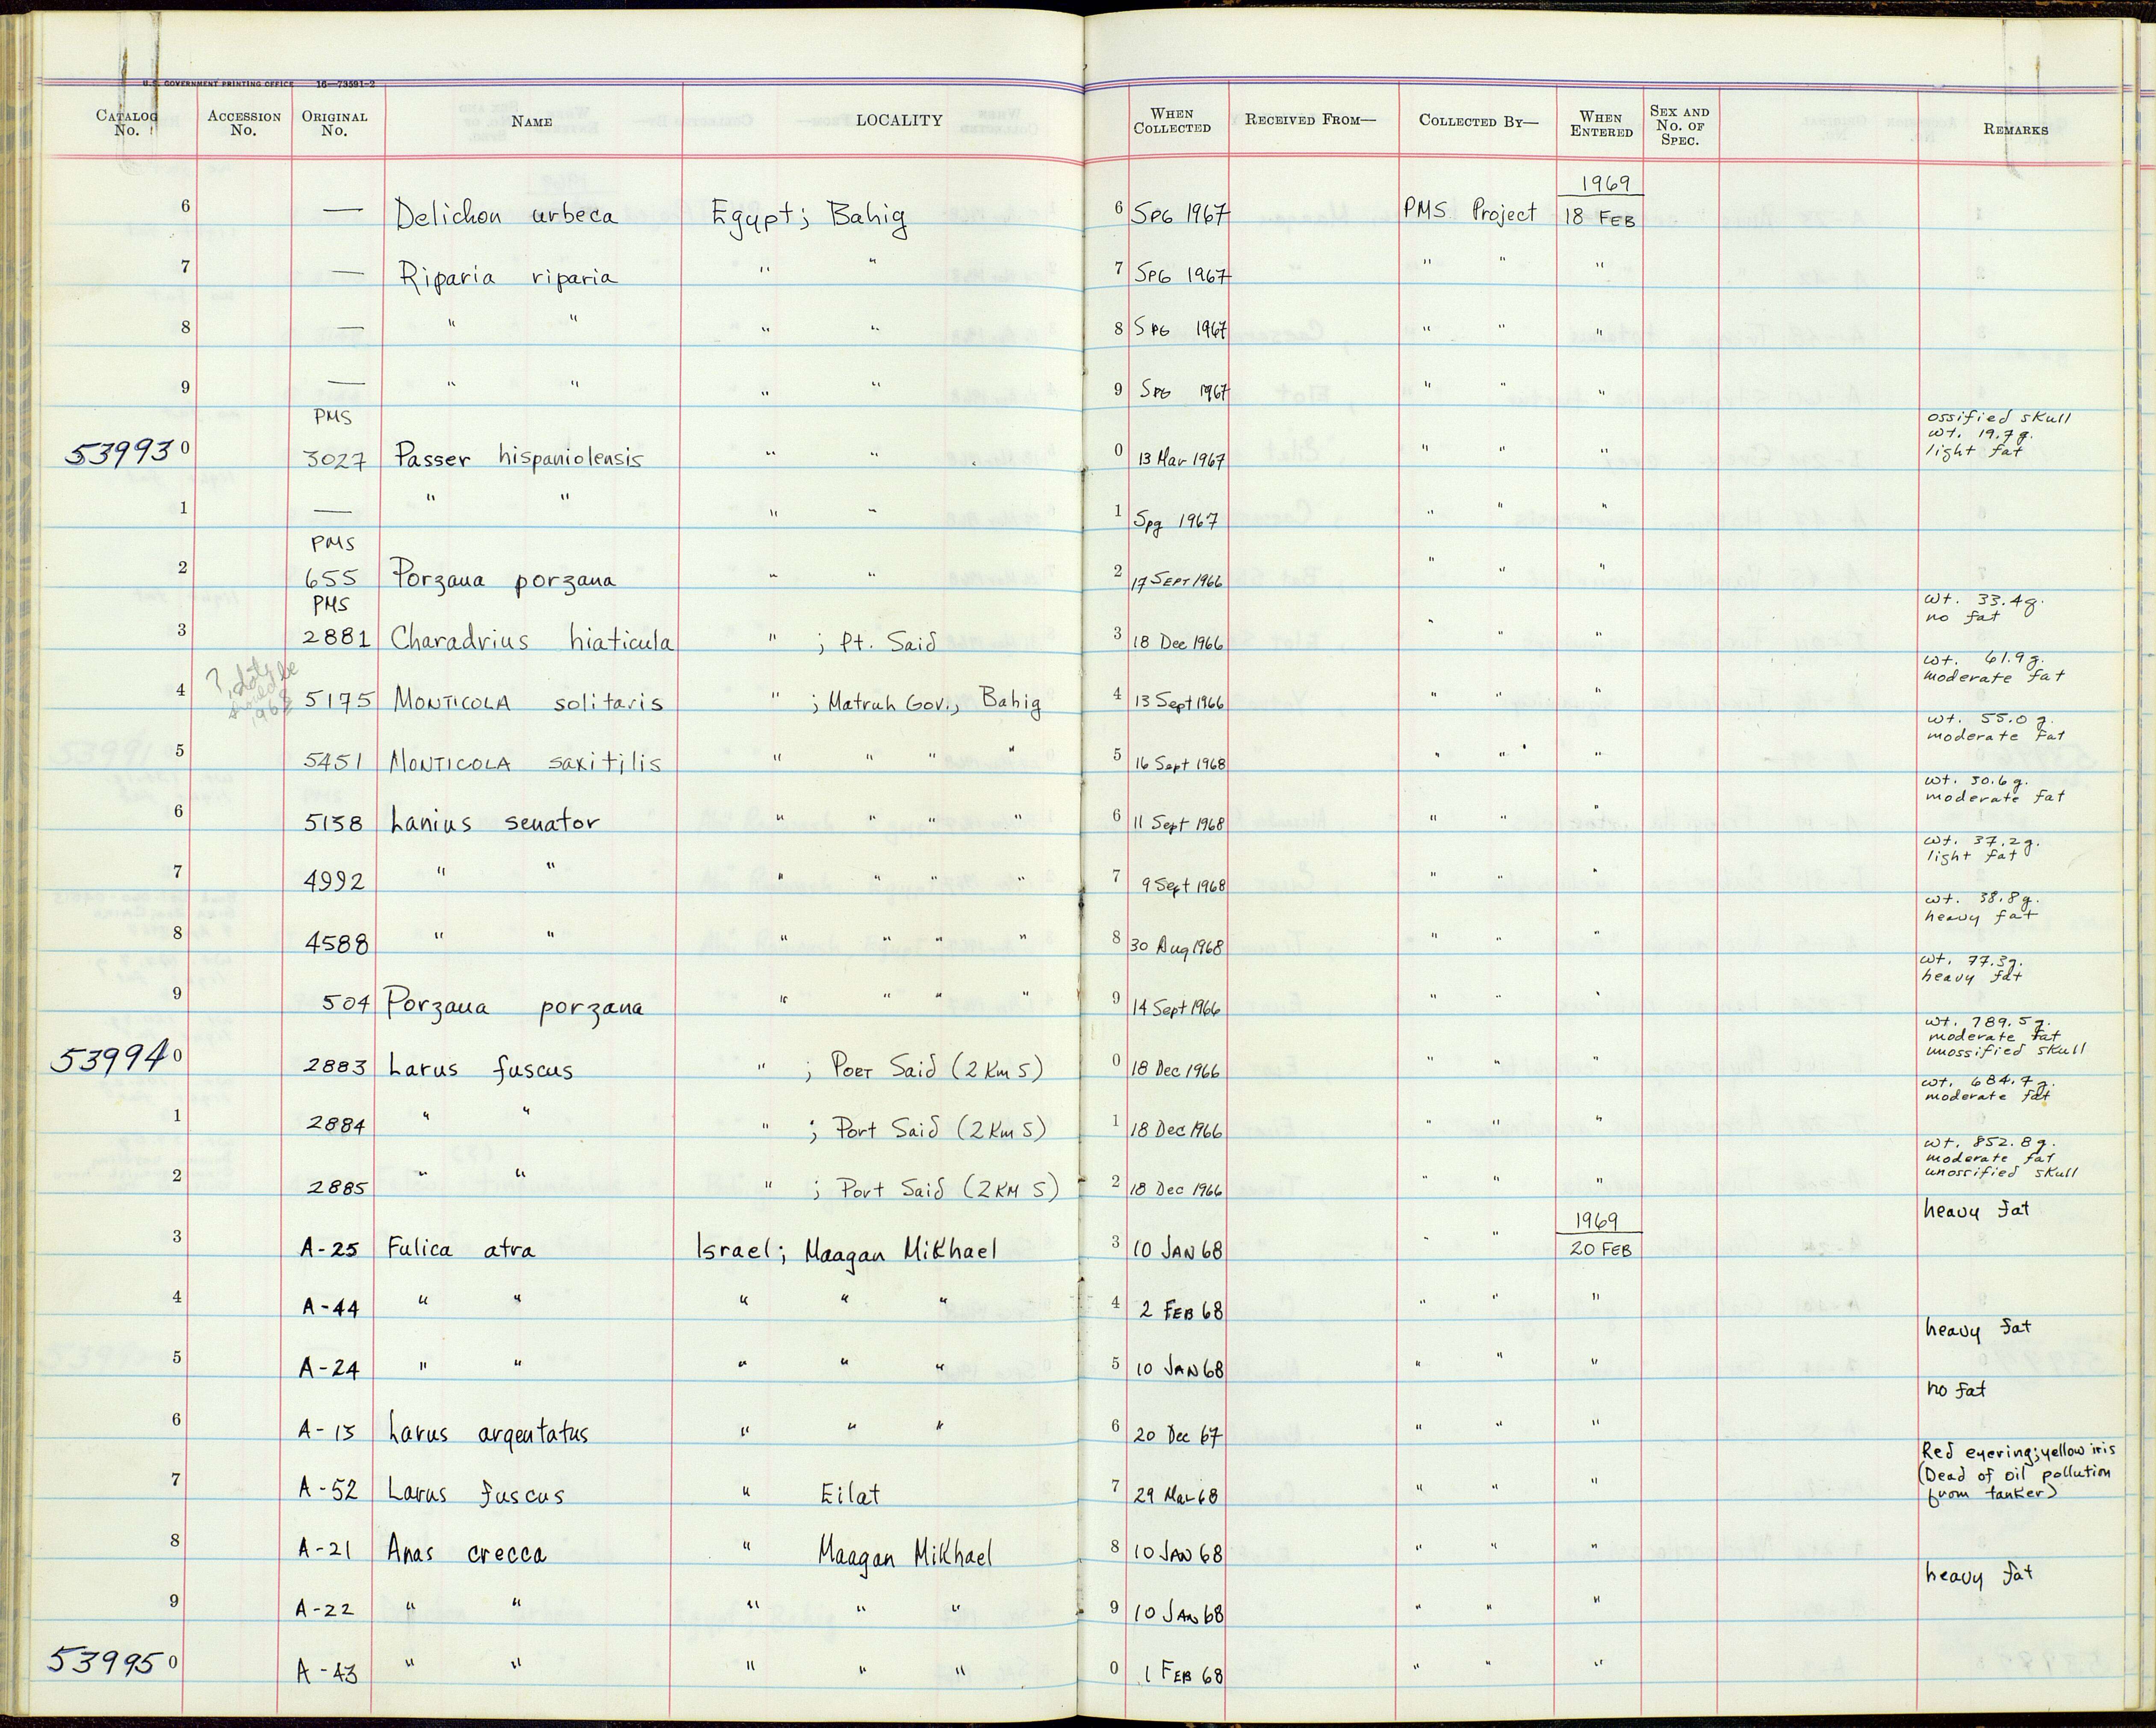 U.S. GOVERNMENT PRINTING OFFICE 16—73591-2
CATALOG No. ACCESSION No. ORIGINAL No. NAME LOCALITY WHEN COLLECTED RECEIVED FROM— COLLECTED BY— WHEN ENTERED SEX AND No. OF SPEC. REMARKS
1969
6 — Delichon urbeca Egypt; Bahig 6 SPG 1967 PMS Project 18 FEB
7 — Riparia riparia " " 7 SPG 1967 " " "
8 — " " " " 8 SPG 1967 " " "
9 — " " " " 9 SPG 1967 " " "
PMS ossified skull
wt. 19.7g.
539930 3027 Passer hispaniolensis " " 0 13 Mar 1967 " " " light fat
1 — " " " " 1 Spg 1967 " " "
PMS
2 655 Porzana porzana " " 2 17 SEPT 1966 " " "
PMS wt. 33.4g.
no fat
3 2881 Charadrius hiaticula " ; Pt. Said 3 18 Dec 1966 " " "
? date should be 1968 wt. 61.9g.
moderate fat
4 5175 MONTICOLA solitaris " ; Matruh Gov., Bahig 4 13 Sept 1966 " " "
wt. 55.0 g.
moderate fat
5 5451 MONTICOLA saxitilis " " " " 5 16 Sept 1968 " " "
wt. 30.6g.
moderate fat
6 5138 Lanius senator " " " " 6 11 Sept 1968 " " "
wt. 37.2g.
light fat
7 4992 " " " " " " 7 9 Sept 1968 " " "
wt. 38.8g.
heavy fat
8 4588 " " " " " " 8 30 Aug 1968 " " "
wt. 77.3g.
heavy fat
9 504 Porzana porzana " " " " 9 14 Sept 1966 " " "
wt. 789.5g.
moderate fat
unossified skull
539940 2883 Larus fuscus " ; Port Said (2 Km S) 0 18 Dec 1966 " " "
wt. 684.7g.
moderate fat
1 2884 " " " ; Port Said (2 Km S) 1 18 Dec 1966 " " "
wt. 852.8g.
moderate fat
unossified skull
2 2885 " " " ; Port Said (2 KM S) 2 18 Dec 1966 " " "
1969 heavy fat
3 A-25 Fulica atra Israel; Maagan Mikhael 3 10 JAN 68 " " 20 FEB
4 A-44 " " " " " 4 2 FEB 68 " " "
heavy fat
5 A-24 " " " " " 5 10 JAN 68 " " "
no fat
6 A-13 Larus argentatus " " " 6 20 Dec 67 " " "
Red eyering; yellow iris
(Dead of oil pollution
from tanker)
7 A-52 Larus fuscus " Eilat 7 29 Mar 68 " " "
8 A-21 Anas crecca " Maagan Mikhael 8 10 JAN 68 " " "
heavy fat
9 A-22 " " " " " 9 10 JAN 68 " " "
539950 A-43 " " " " " 0 1 FEB 68 " " "